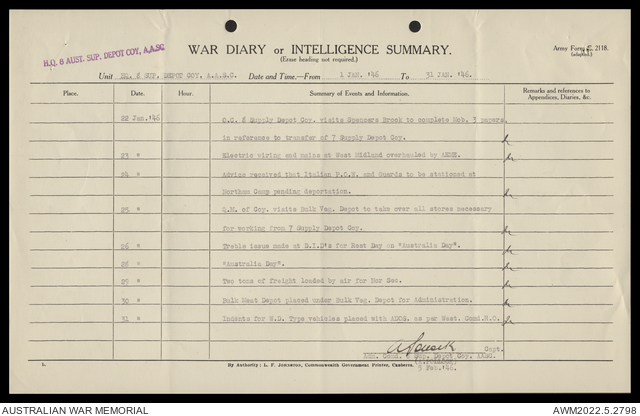 H.Q. 8 AUST. SUP. DEPOT COY, A.A.S.C.
WAR DIARY or INTELLIGENCE SUMMARY.
(Erase heading not required.)
Army Form C. 2118.
(adapted.)
Unit HQ. 8 SUP. DEPOT COY. A.A.S.C. Date and Time.—From 1 JAN. '46 To 31 JAN. '46.
Place. Date. Hour. Summary of Events and Information. Remarks and references to
Appendices, Diaries, &c.
22 Jan. '46 O.C. 8 Supply Depot Coy. visits Spencers Brook to complete Mob. 3 papers
in reference to transfer of 7 Supply Depot Coy.
23 " Electric wiring and mains at West Midland overhauled by
24 " Advice received that Italian P.O.W. and Guards to be stationed at
Northam Camp pending deportation.
25 " Q.M. of Coy. visits Bulk Veg. Depot to take over all stores necessary
for working from 7 Supply Depot Coy.
26 " Treble issue made at D.I.D's for Rest Day on "Australia Day".
28 " "Australia Day".
29 " Two tons of freight loaded by air for Nor Sec.
30 " Bulk Meat Depot placed under Bulk Veg. Depot for administration.
31 " Indents for W.D. Type vehicles placed with ADOS. as per West. Comd.R.O.
Capt.
Comd. 8 Sup. Depot Coy. AASC.
5 Feb. '46.
L. By Authority: L. F. Johnston, Commonwealth Government Printer, Canberra.
AUSTRALIAN WAR MEMORIAL AWM2022.5.2798